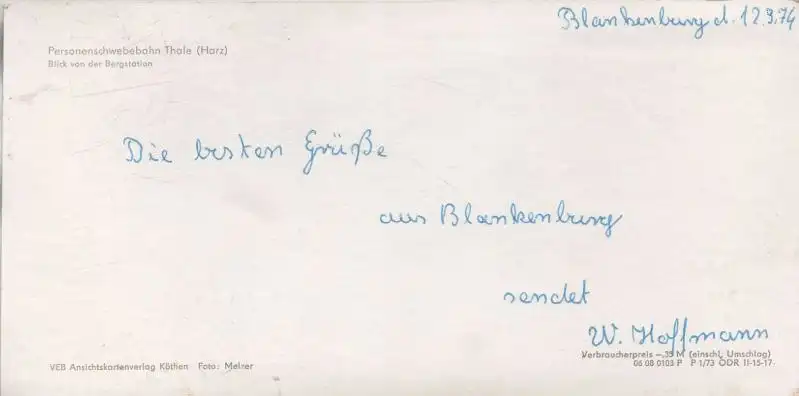 Blankenburg d. 12.9.74
Personenschwebebahn Thale (Harz)
Blick von der Bergstation
Die besten Grüße
aus Blankenburg
sendet
W. Hoffmann
Verbraucherpreis –,35 M (einschl. Umschlag)
06 08 0103 P P 1/73 DDR II-15-17
VEB Ansichtskartenverlag Köthen Foto: Melzer